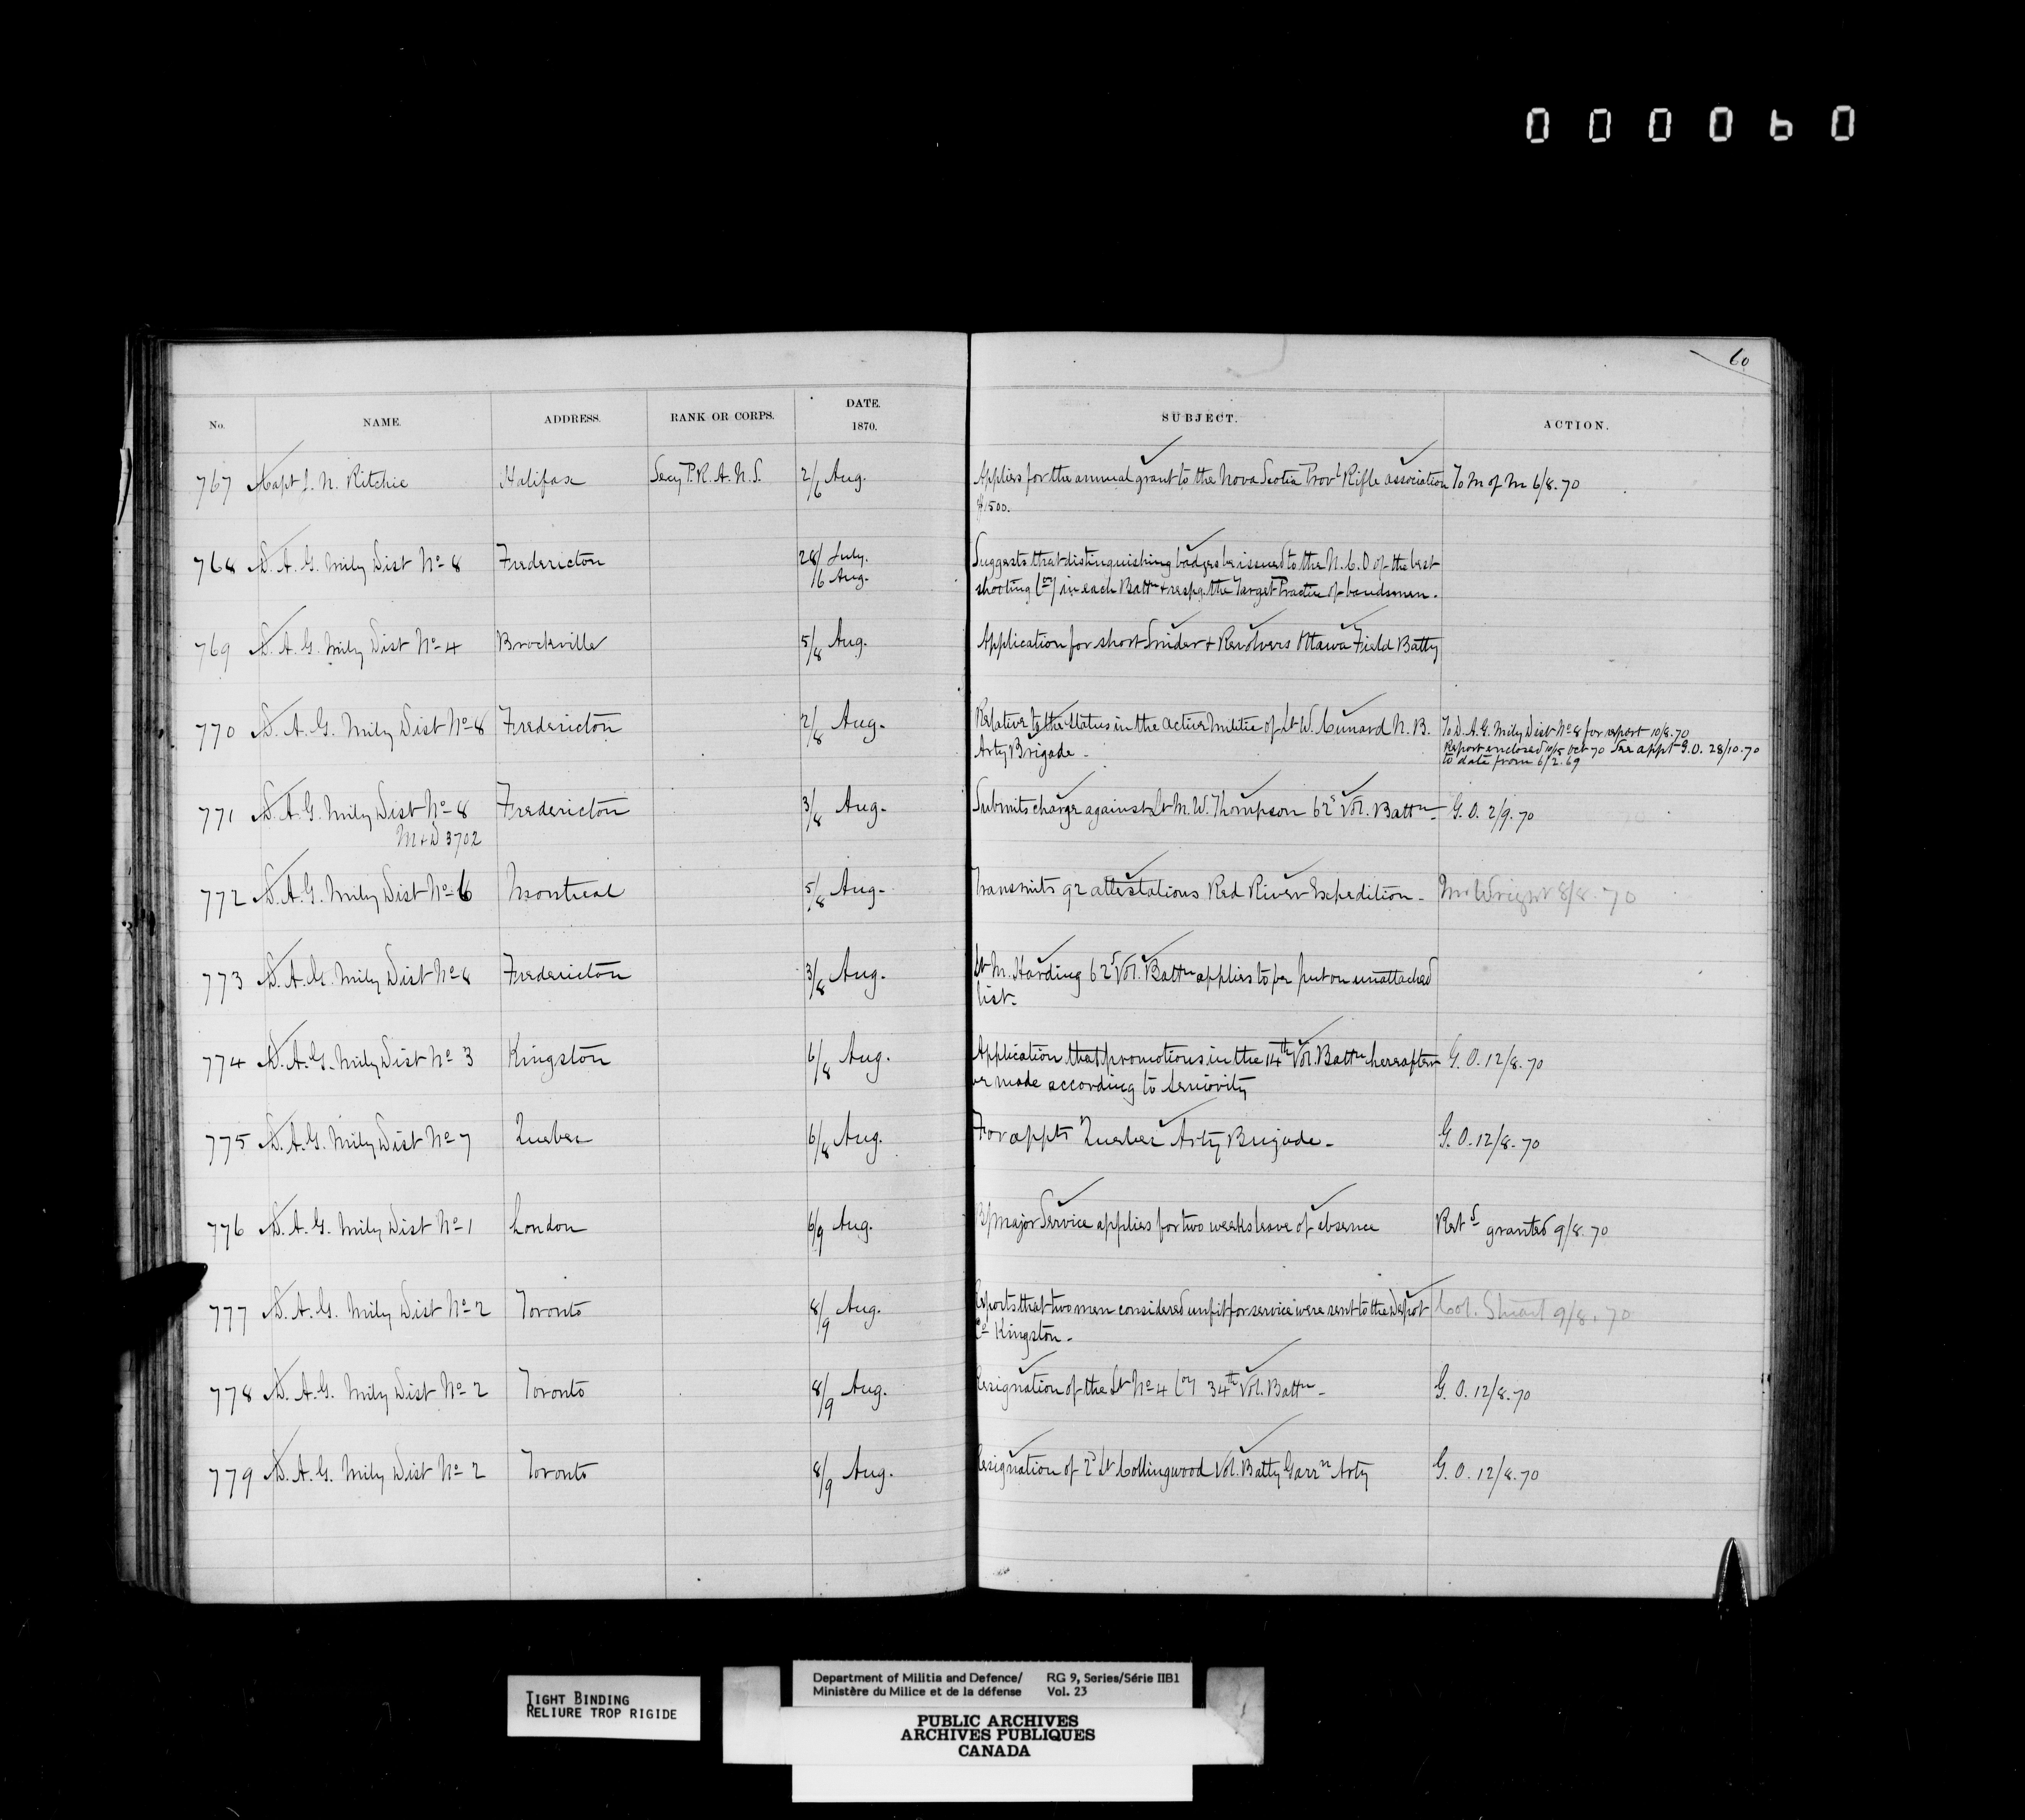 000060
60
No. NAME. ADDRESS. RANK OR CORPS. DATE. 1870. SUBJECT. ACTION.
767 Capt J. N. Ritchie Halifax Secy P. R. A. N. S. 2/6 Aug. Applies for the annual grant to the Nova Scotia Provl Rifle association To M of M 6/8.70
$1500.
768 D. A. G. Mily Dist No 8 Fredericton 28/ July. Suggests that distinguishing badges be issued to the N. C. O of the best
/6 Aug. shooting Coy in each Battn & respg. the Target Practice of bandsmen.
769 D. A. G. Mily Dist No 4 Brockville 5/8 Aug. Application for short Snider & Revolvers Ottawa Field Batty
770 D. A. G. Mily Dist No 8 Fredericton 2/8 Aug. Relative to the status in the active militia of Lt W. Cunard N. B. To D. A. G. Mily Dist No 8 for report 10/8.70
Arty Brigade - Report enclosed Oct 70 See appt G. O. 28/10.70
to date from 6/2.69
771 D. A. G. Mily Dist No 8 Fredericton 3/8 Aug. Submits charge against Lt M. W. Thompson 62d Vol. Battn - G. O. 2/9.70
M & D 3702
772 D. A. G. Mily Dist No 6 Montreal 5/8 Aug. Transmits 92 attestations Red River Expedition - Mr Wright 8/8.70
773 D. A. G. Mily Dist No 8 Fredericton 3/8 Aug. Lt M. Harding 62d Vol. Battn applies to be put on unattached
list -
774 D. A. G. Mily Dist No 3 Kingston 6/8 Aug. Application that promotions in the 14th Vol. Battn hereafter G. O. 12/8.70
be made according to seniority
775 D. A. G. Mily Dist No 7 Quebec 6/8 Aug. For appts Quebec Arty Brigade - G. O. 12/8.70
776 D. A. G. Mily Dist No 1 London 6/9 Aug. B/Major Service applies for two weeks leave of absence Retd granted 9/8.70
777 D. A. G. Mily Dist No 2 Toronto 8/9 Aug. Reports that two men considered unfit for service were sent to the Depot Col. Stuart 9/8.70
Co Kingston -
778 D. A. G. Mily Dist No 2 Toronto 8/9 Aug. Resignation of the Lt No 4 Coy 34th Vol. Battn - G. O. 12/8.70
779 D. A. G. Mily Dist No 2 Toronto 8/9 Aug. Resignation of 2d Lt Collingwood Vol. Batty Garrn Arty G. O. 12/8.70
TIGHT BINDING
RELIURE TROP RIGIDE
Department of Militia and Defence/ RG 9, Series/Série IIB1
Ministère du Milice et de la défense Vol. 23
PUBLIC ARCHIVES
ARCHIVES PUBLIQUES
CANADA